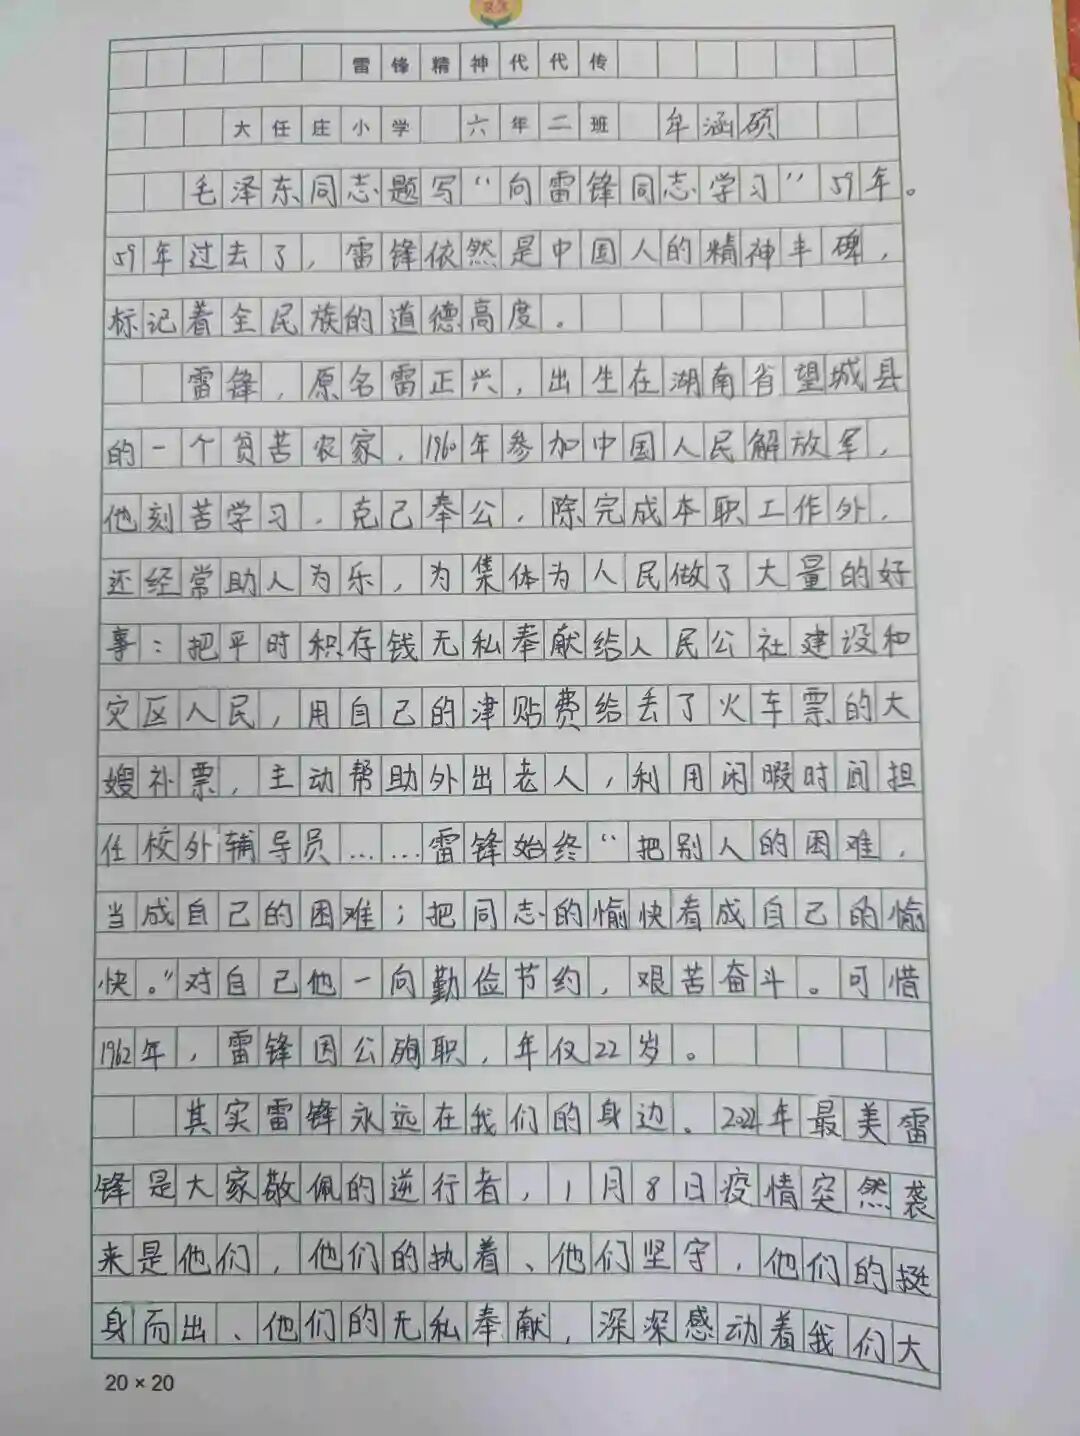 雷锋精神代代传
大任庄小学 六年二班 年涵硕
毛泽东同志题写“向雷锋同志学习”59年。
59年过去了,雷锋依然是中国人的精神丰碑,
标记着全民族的道德高度。
雷锋,原名雷正兴,出生在湖南省望城县
的一个贫苦农家,1960年参加中国人民解放军,
他刻苦学习,克己奉公,除完成本职工作外,
还经常助人为乐,为集体为人民做了大量的好
事:把平时积存钱无私奉献给人民公社建设和
灾区人民,用自己的津贴费给丢了火车票的大
嫂补票,主动帮助外出老人,利用闲暇时间担
任校外辅导员……雷锋始终“把别人的困难,
当成自己的困难;把同志的愉快看成自己的愉
快。”对自己他一向勤俭节约,艰苦奋斗。可惜
1962年,雷锋因公殉职,年仅22岁。
其实雷锋永远在我们的身边。2022年最美雷
锋是大家敬佩的逆行者,1月8日疫情突然袭
来是他们,他们的执着、他们坚守,他们的挺
身而出、他们的无私奉献,深深感动着我们大
20×20